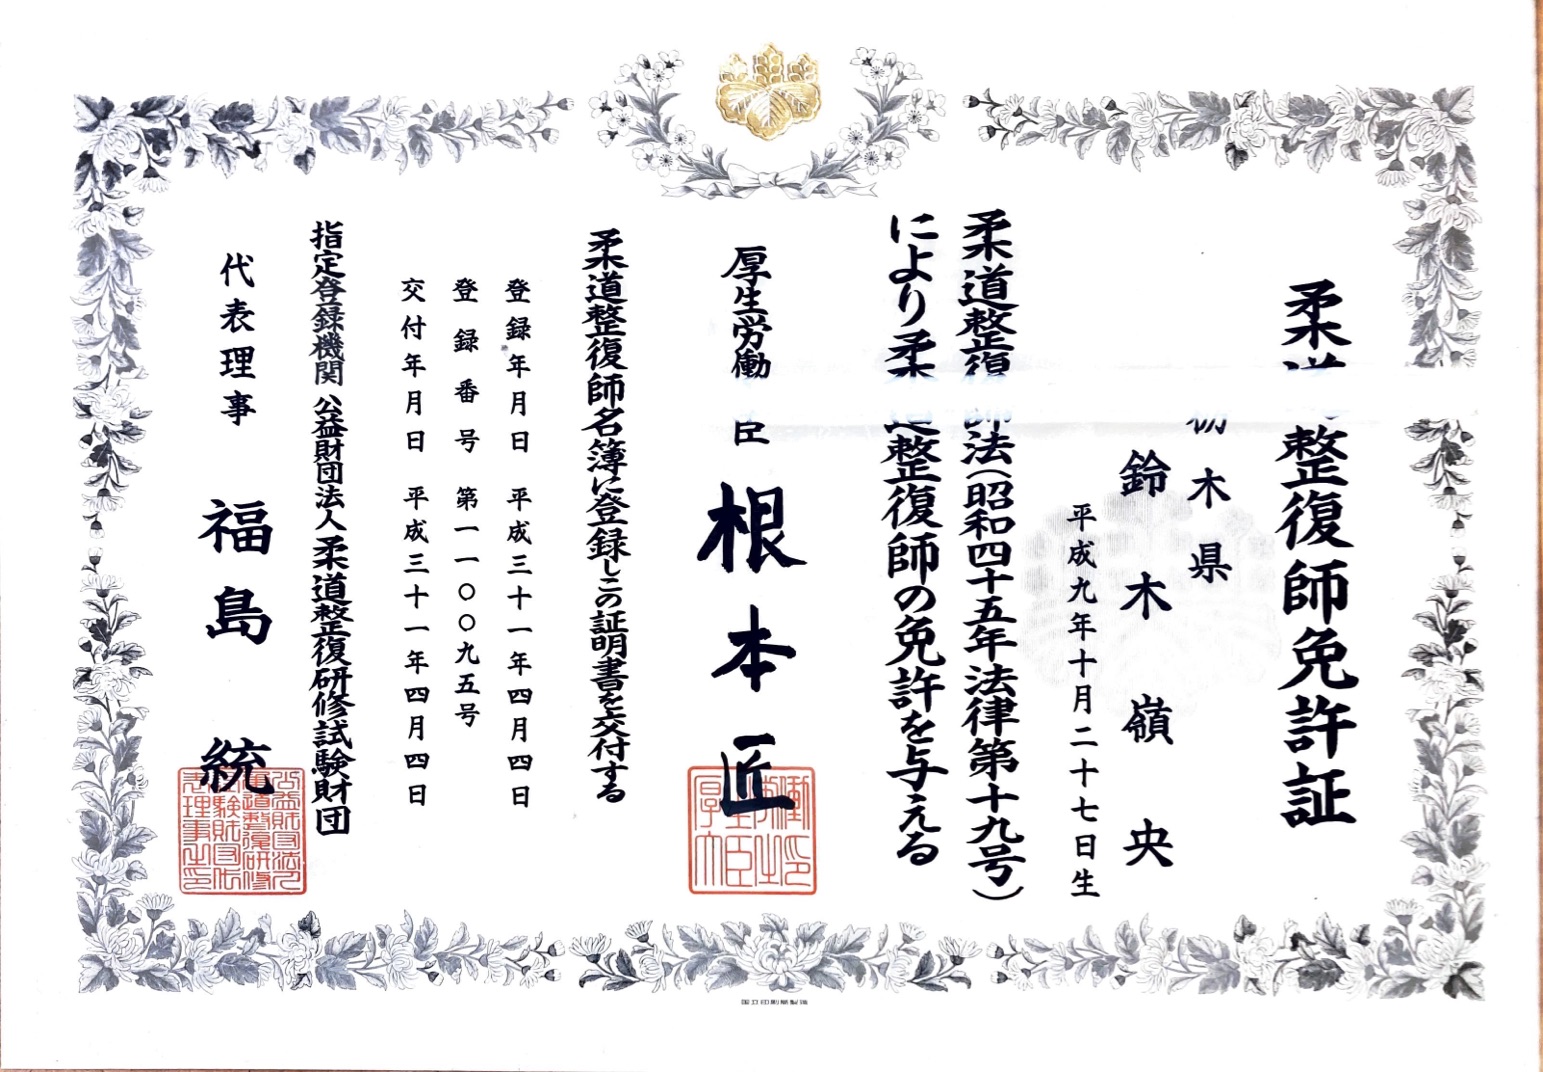 柔道整復師免許証
栃木県
鈴木嶺央
平成九年十月二十七日生
柔道整復師法(昭和四十五年法律第十九号)
により柔道整復師の免許を与える
厚生労働 臣 根本匠
柔道整復師名簿に登録しこの証明書を交付する
登録年月日 平成三十一年四月四日
登録番号 第一一〇〇九五号
交付年月日 平成三十一年四月四日
指定登録機関 公益財団法人柔道整復研修試験財団
代表理事 福島統